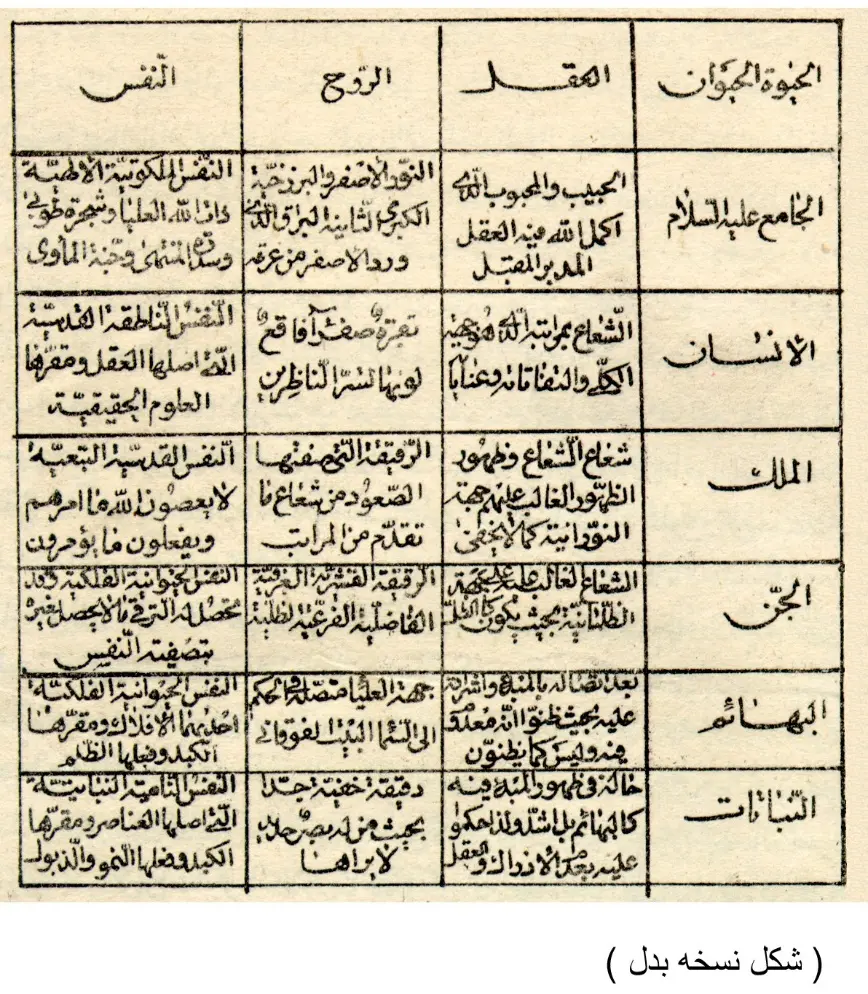 الحیوة الحیوان
العقل
الرّوح
النّفس
الجامع علیه السلام
الحبیب والمحبوب الّذی
اکمل الله فیه العقل
المدبر المقبل
النّور الاصفر والبرزخیّة
الکبری الثانیة البراق الّذی
ورد الاصفر من عرقه
النّفس الملکوتیّة الالهیّة
ذات الله العلیا و شجرة طوبی
وسدرة المنتهی وجنّة المأوی
الانسان
الشّعاع بمراتبه الّذی هو جهة
الکلّی والتفاتاته وعنایاته
بقرة صفرآء فاقع
لونها تسرّ النّاظرین
النّفس النّاطقة القدسیّة
الّتی اصلها العقل و مقرّها
العلوم الحقیقیّة
الملک
شعاع الشّعاع وظهور
الظهور الغالب علیهم جهة
النّورانیة کما لا یخفی
الرّقیقة الّتی صفتها
الصّعود من شعاع ما
تقدّم من المراتب
النّفس القدسیّة التبعیّة
لا یعصون الله ما امرهم
ویفعلون ما یؤمرون
الجنّ
الشعاع الغالب علیه جهة
الظلمانیّة بحیث یکون
الرقیقة القشریّة
الفاضلیّة الفرعیّة الظلیّة
النفس الحیوانیة الفلکیة وقد
تحصل له الترقی ما لا یحصل لغیره
بتصفیة النّفس
البهائم
بعد اتصاله بالمبدء واشراقه
علیه بحیث ظنوا انّه معدوم
فیه ولیس کما یظنّون
جهة العلیا متصلة فی الحکم
الی السّماء البیت الفوقانی
النفس الحیوانیة الفلکیّة
احدیهما الافلاک ومقرّها
الکبد وفعلها الظلم
النّباتات
حاله فی ظهور المبدء فیه
کالبهائم بل اشدّ ولذا حکموا
علیه بعدم الادراک والعقل
دقیقة خفیّة جدّا
بحیث من له بصر حدید
لا یراها
النفس النّامیة النباتیّة
الّتی اصلها العناصر ومقرّها
الکبد وفعلها النمو والذبول
( شکل نسخه بدل )